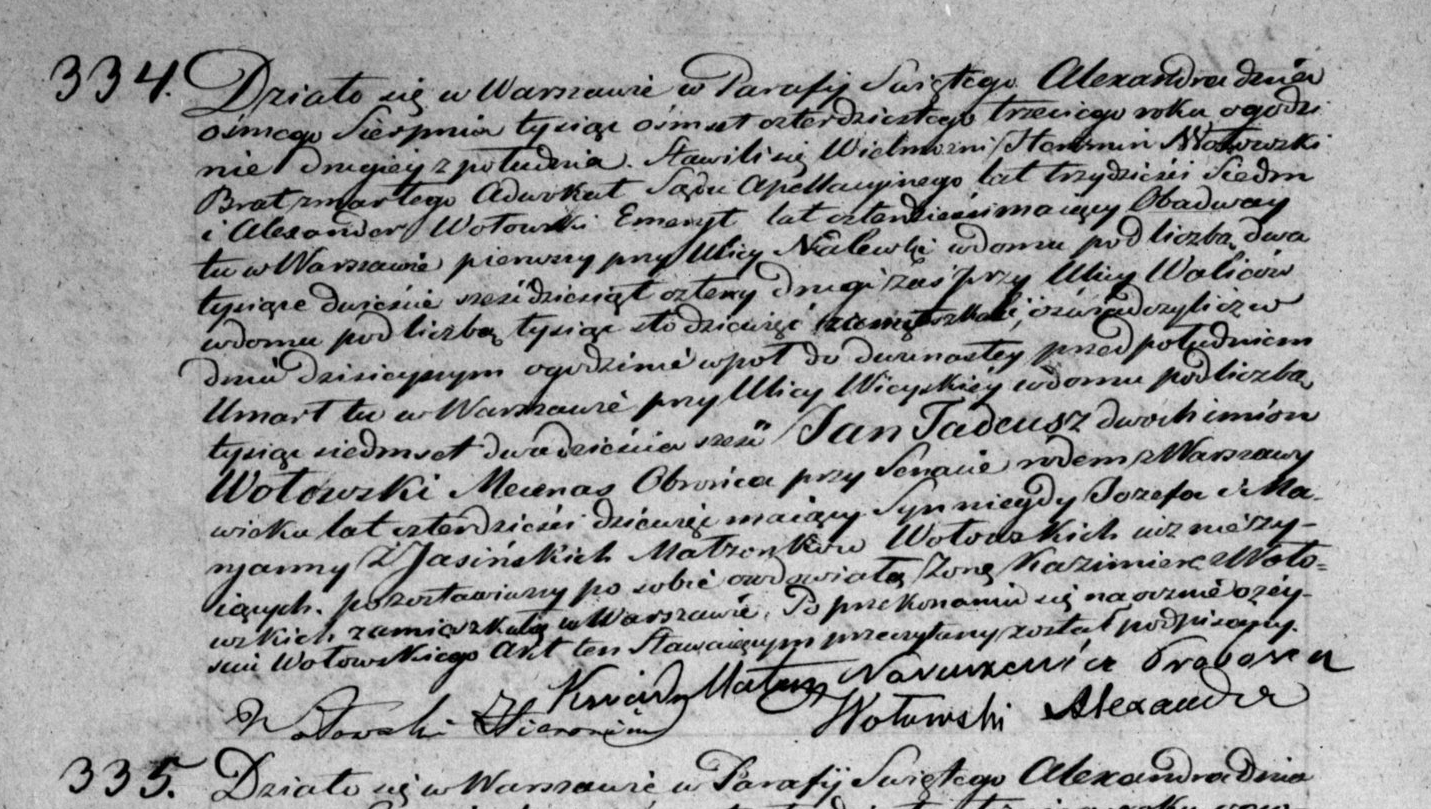 334. Działo się w Warszawie w Parafij Swiętego Alexandra dnia
ósmego Sierpnia tysiąc ośmset czterdziestego trzeciego roku o godzi
nie drugiey z południa. Stawili się Wielmożni Wołowski
Brat zmarłego Adwokat Sądu Apellacyinego lat trzydzieści Siedm
i Alexander Wołowski Emeryt lat czterdzieści maiący Obadway
tu w Warszawie pierwszy przy Ulicy Nalewki w domu pod liczbą dwa
tysiące dwieście sześćdziesiąt cztery drugi zaś przy Ulicy Waliców
w domu pod liczbą tysiąc sto dziewięć zamieszkali, oświadczyli iż w
dniu dzisieyszym o godzinie wpół do dwunastey przed południem
Umarł tu w Warszawie przy Ulicy Wieyskiéy w domu pod liczbą
tysiąc siedmset dwadzieścia sześć Jan Tadeusz dwoch imion
Wołowski Mecenas Obrońca przy Senacie rodem z Warszawy
wieku lat czterdzieści dziewięć maiący Syn niegdy Jozefa i Ma-
ryanny z Jasińskich Małżonków Wołowskich iuż nieży-
iących. pozostawiwszy po sobie owdowiałą Żonę Kazimierę z Woło=
wskich zamieszkałą w Warszawie. Po przekonaniu się naocznie o zéy-
ściu Wołowskiego Akt ten Stawaiącym przeczytany został podpisany.
Xsiądz Mateusz Naruszewicz Proboszcz
Wołowski Hieronim Wołowski Alexander
335. Działo się w Warszawie w Parafij Swiętego Alexandra dnia